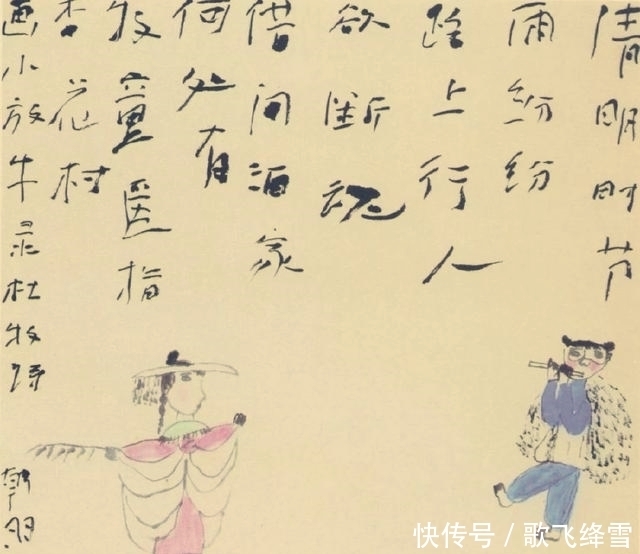 清明时节
雨纷纷
路上行人
欲断魂
借问酒家
何处有
牧童遥指
杏花村
画小放牛录杜牧诗
韩羽
快传号 / 歌飞绛雪